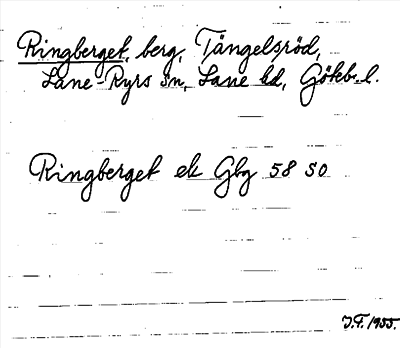 Ringberget, berg, Tängelsröd,
Lane-Ryrs sn, Lane hd, Götebl.
Ringberget ek Gbg 58 SO
J.F. 1955.